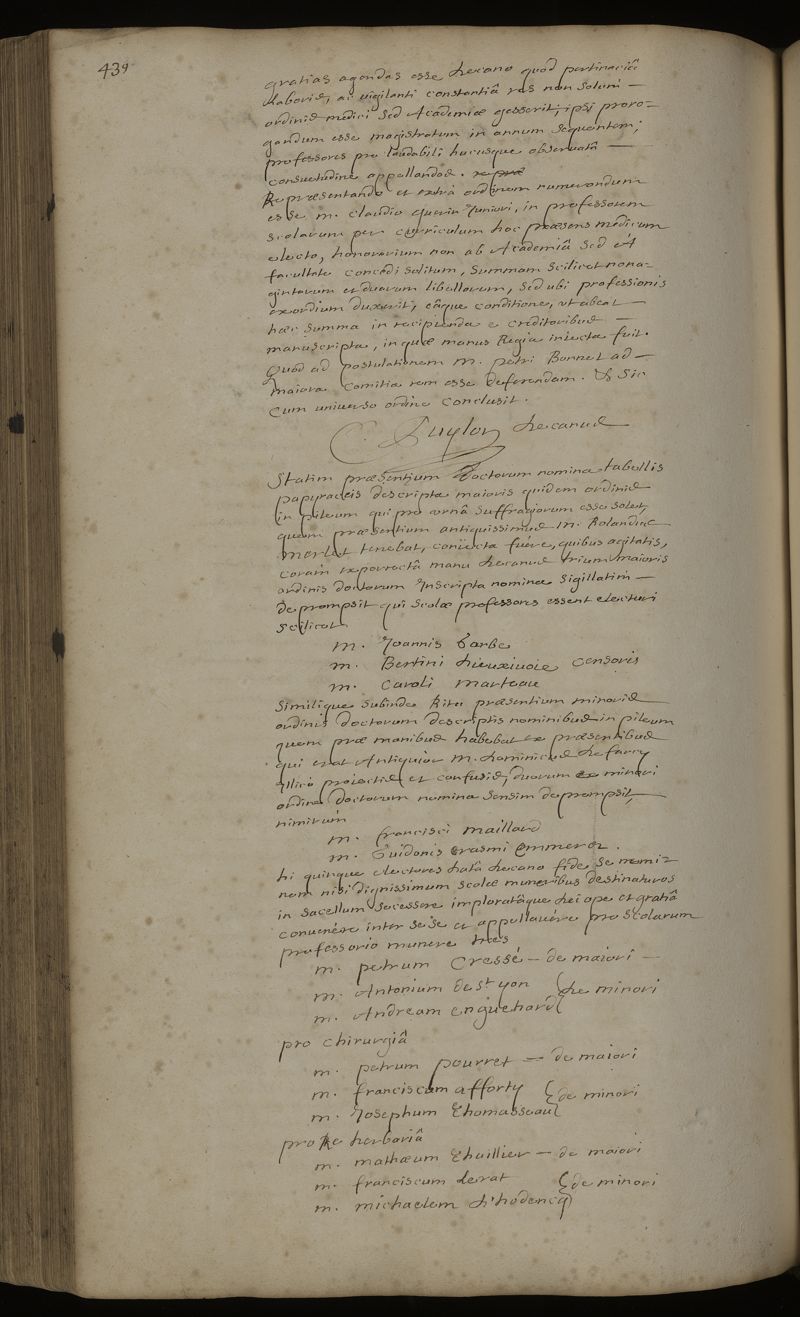 439
gratias agendas esse Decano quod pertinaciâ
Laboris, ac vigilanti constantiâ res non solum —
ordinis medici sed Academiæ gesserit; ipsi proro-
gandum esse magistratum in annum sequentem;
professores pro laudabili hucusque observatâ —
consuetudine appellandos.
Repræsentando et extrà ordinem numerandum
esse m. claudio guerin Juniori, in professorem
scolarum per curriculum hoc præsens medicum
electo, honorarium non ab Academiâ sed À
facultate concedi solitum, summam scilicet nona-
gintarum et duarum libellarum, sed ubi professionis
exordium duxerit, eâque conditione, ut abeat —
hæc summa in recipienda e creditoribus —
manuscripta, in quæ manus Regia iniecta fuit.
Quod ad postulationem m. petri Bonnet ad —
maiora comitia rem esse deferendam. & sic
cum universo ordine conclusit.
C. Puylon Decanus
Statim præsentium Doctorum nomina tabellis
papyraceis descripta maioris quidem ordinis
in pileum qui pro urnâ suffragiorum esse solet,
quem præsentium antiquissimus m. Rolandus
Merlet tenebat, coniecta fuêre, quibus agitatis,
coram exporrectâ manu Decanus trium maioris
ordinis doctorum Inscripta nomina sigillatim —
depromsit qui scolæ professores essent electuri
scilicet
m. Joannis Garbe
m. Bertini Dieuxivoie censoris
m. Caroli Marteau
Similique subinde Ritu præsentium minoris
ordinis doctorum descriptis nominibus in pileum
quem præ manibus habebat ex præsentibus
qui erat Antiquior m. Dominicus De farcy
illicò proiectis et confusis, duorum ex minori
ordine doctorum nomina sensim depromsit,
nimirùm
m. francisci Maillard
m. Guidonis Erasmi Emmerez.
hi quinque electores datâ Decano fide se nemi-
nem nisi dignissimum scolæ muneribus destinaturos
in sacellum secessere imploratâque Dei ope et gratiâ
convenêre inter sese et appellavêre pro scolarum
professorio munere tres
m. petrum Cressé — de maiori —
m. Antonium de st yon
m. Andream enguehard } de minori
pro chirurgiâ
m. petrum pourret — de maiori
m. franciscum afforty
m. Josephum Thomasseau } de minori
pro Re herbariâ
m. mathæum Thuillier — de maiori
m. franciscum
m. michaelem d'hodencq } de minori